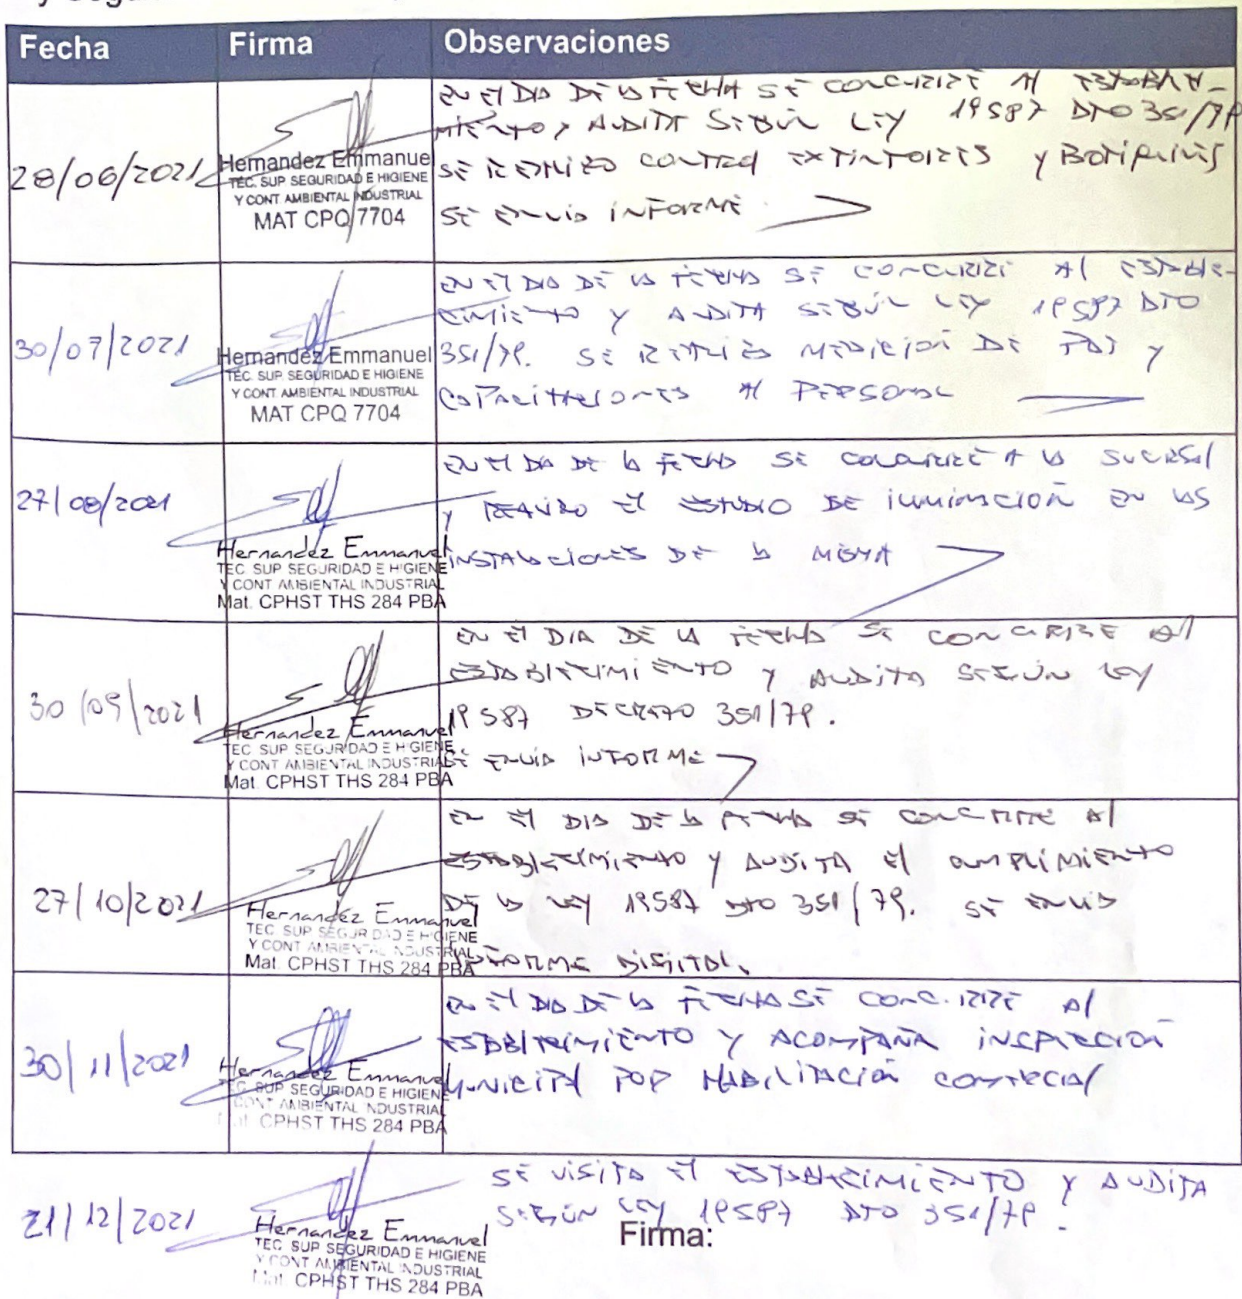 y Segu
Fecha Firma Observaciones
28/06/2021
Hernandez Emmanuel
TEC. SUP SEGURIDAD E HIGIENE
Y CONT. AMBIENTAL INDUSTRIAL
MAT CPQ 7704
EN EL DIA DE LA FECHA SE CONCURRE Al ESTABLE-
CIMIENTO Y AUDITA SEGÚN LEY 19587 DTO 351/79
SE REALIZO CONTROL EXTINTORES y BOTIQUINES
SE ENVIA INFORME
30/07/2021
Hernandez Emmanuel
TEC. SUP SEGURIDAD E HIGIENE
Y CONT. AMBIENTAL INDUSTRIAL
MAT CPQ 7704
EN EL DIA DE LA FECHA SE CONCURRE Al ESTABLE-
CIMIENTO Y AUDITA SEGÚN LEY 19587 DTO
351/79. SE MEDICION DE PAT y
CAPACITACIONES Al PERSONAL
27/08/2021
Hernandez Emmanuel
TEC. SUP SEGURIDAD E HIGIENE
Y CONT AMBIENTAL INDUSTRIAL
Mat. CPHST THS 284 PBA
EN EL DIA DE LA FECHA SE CONCURRE A LA SUCURSAL
y REALIZO EL ESTUDIO DE ILUMINACION EN LAS
INSTALACIONES DE LA MISMA
30/09/2021
Hernandez Emmanuel
TEC SUP SEGURIDAD E HIGIENE
Y CONT AMBIENTAL INDUSTRIAL
Mat. CPHST THS 284 PBA
EN EL DIA DE LA FECHA SE CONCURRE Al
ESTABLECIMIENTO Y AUDITA SEGÚN LEY
19587 DECRETO 351/79.
SE ENVIA INFORME
27/10/2021
Hernandez Emmanuel
TEC. SUP SEGURIDAD E HIGIENE
Y CONT AMBIENTAL INDUSTRIAL
Mat. CPHST THS 284 PBA
EN EL DIA DE LA FECHA SE CONCURRE Al
ESTABLECIMIENTO Y AUDITA El CUMPLIMIENTO
DE LA LEY 19587 DTO 351/79. SE ENVIA
INFORME DIGITAL.
30/11/2021
Hernandez Emmanuel
TEC SUP SEGURIDAD E HIGIENE
Y CONT AMBIENTAL INDUSTRIAL
Mat. CPHST THS 284 PBA
EN EL DIA DE LA FECHA SE CONCURRE Al
ESTABLECIMIENTO Y ACOMPAÑA INSPECCION
MUNICIPAL POR HABILITACION COMERCIAL
21/12/2021
Hernandez Emmanuel
TEC SUP SEGURIDAD E HIGIENE
Y CONT AMBIENTAL INDUSTRIAL
Mat. CPHST THS 284 PBA
SE VISITA EL ESTABLECIMIENTO Y AUDITA
SEGÚN LEY 19587 DTO 351/79.
Firma: